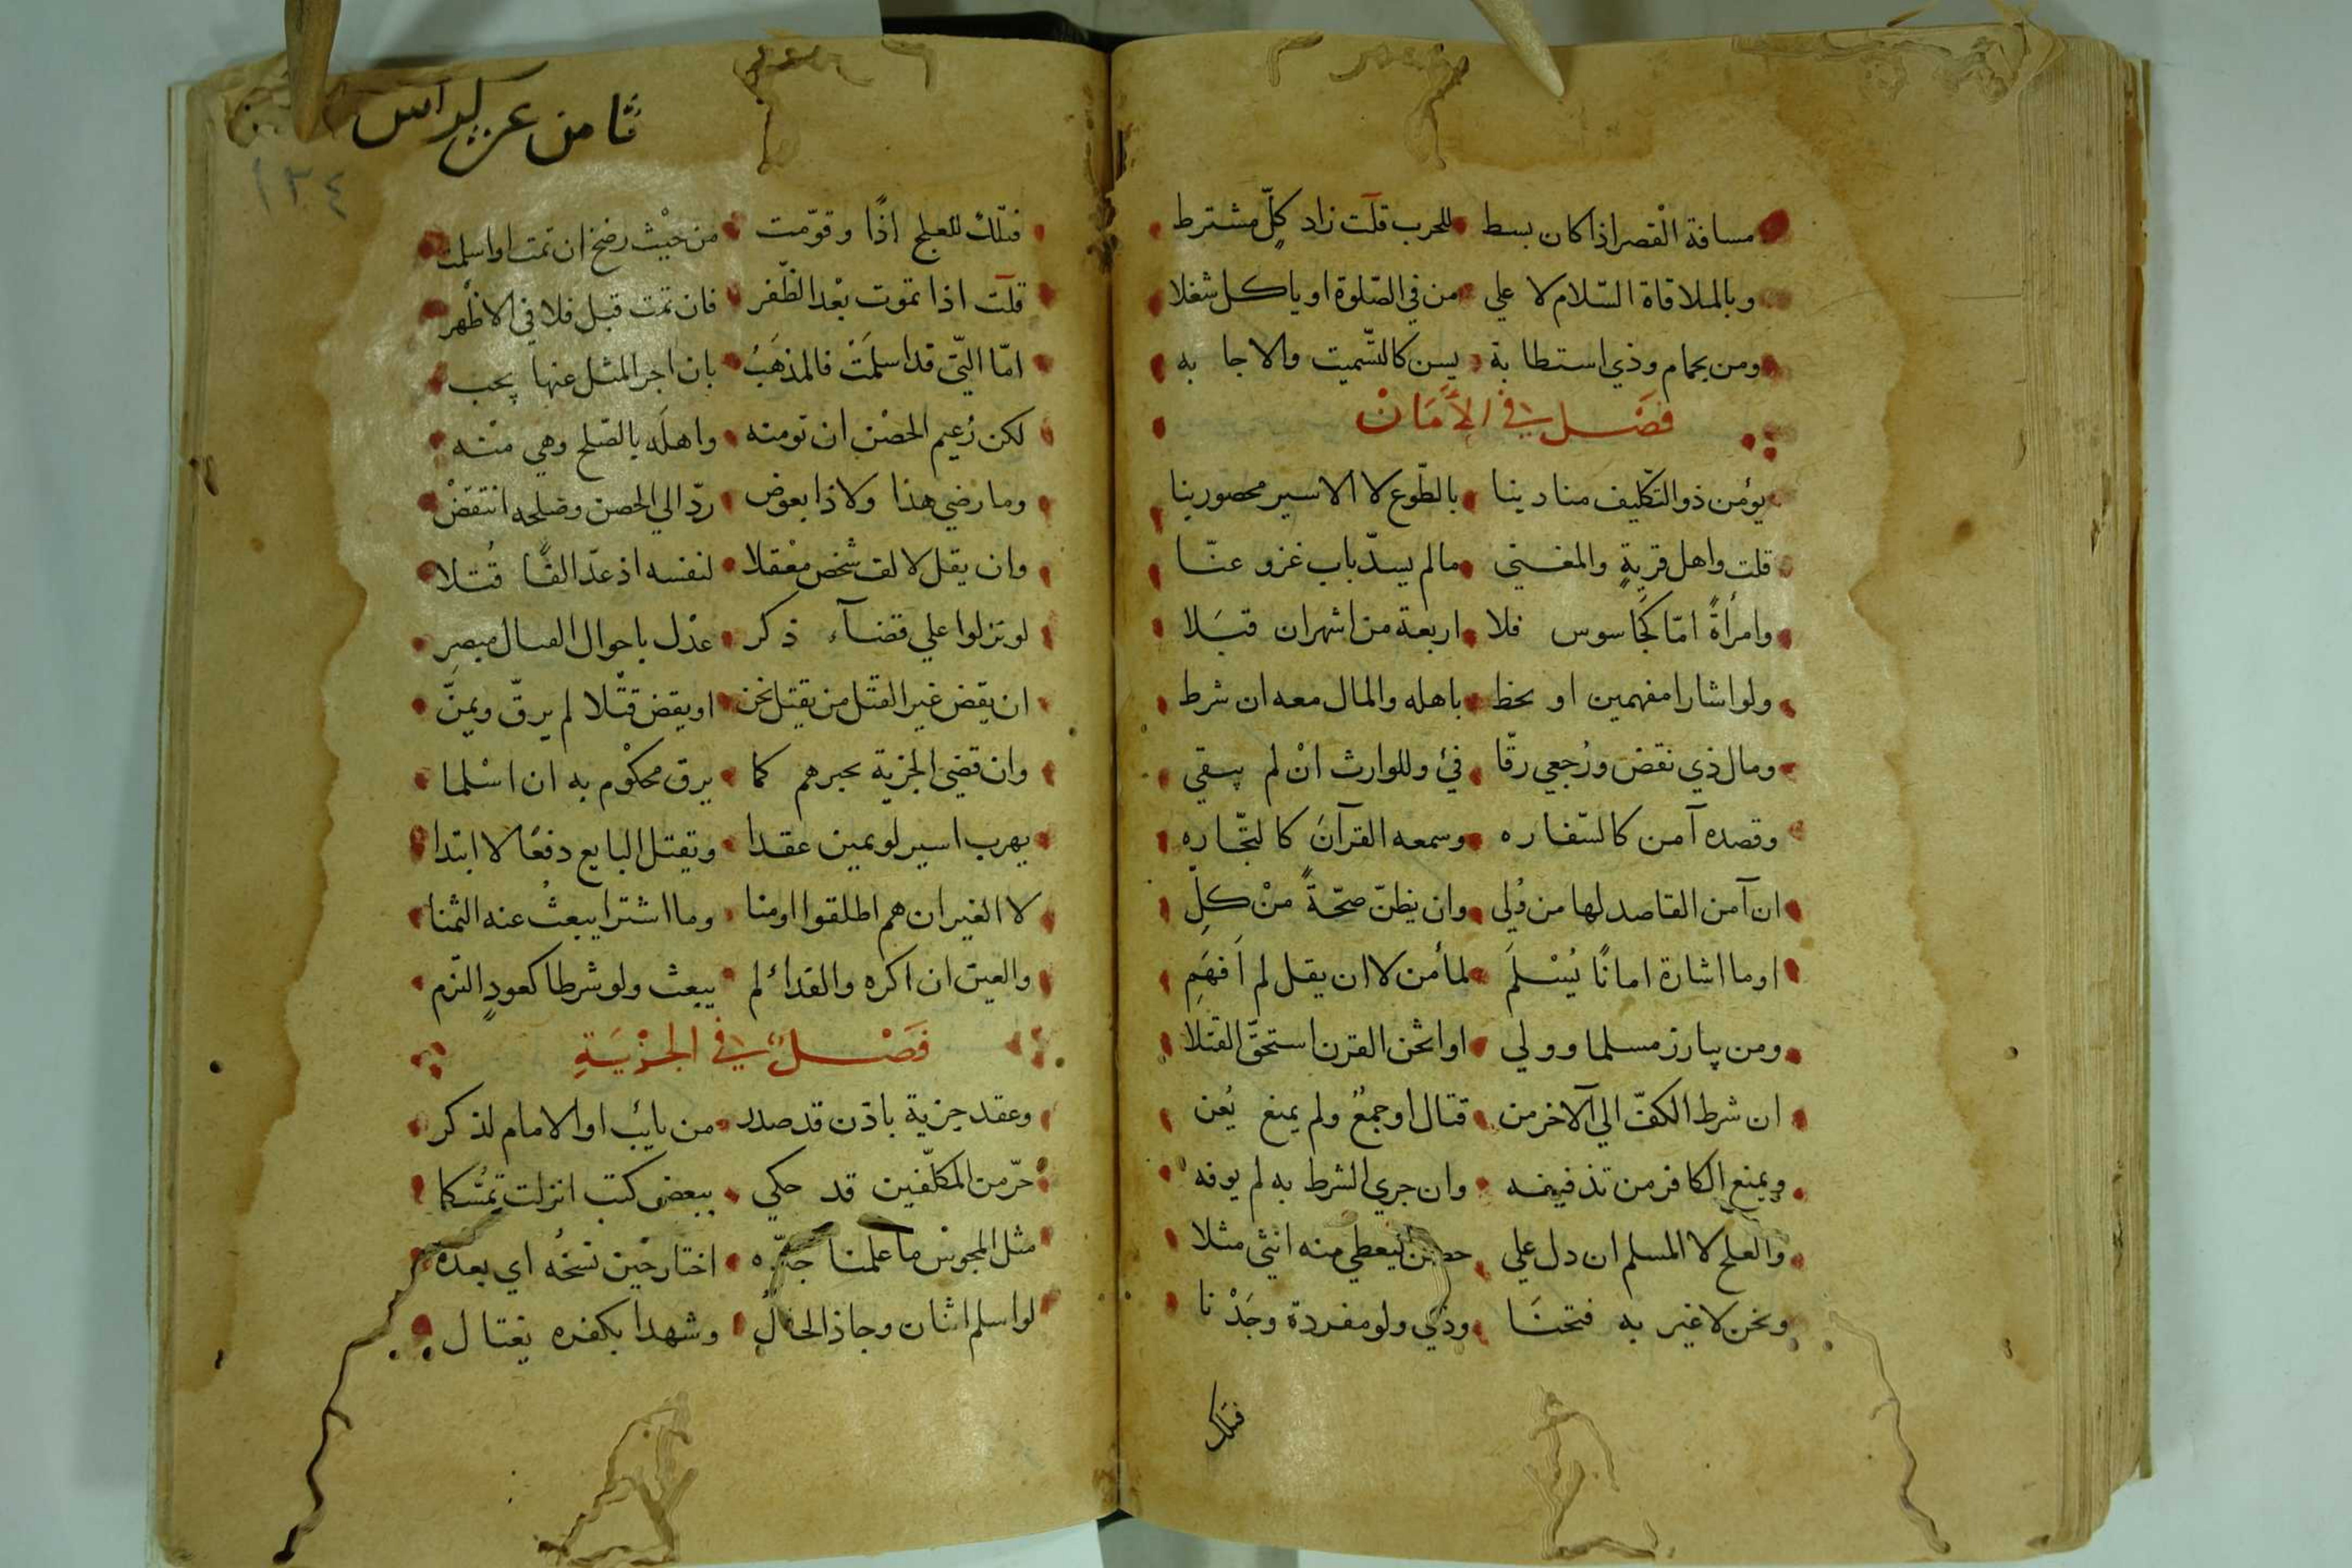 مسافة القصر اذا كان بسط للحرب قلت زاد كلّ مشترط
وبالملاقاة السّلام لا علي من في الصّلوة او ياكل شغلا
ومن بحمام وذي استطابة يسن كالتشميت والاجابه
فصل في الأمان
يؤمن ذو التكليف منا دينا بالطّوع لا الاسير محصورينا
قلت واهل قرية والمغني مالم يسدّ باب غزو عنّا
وامرأةً امّا كجاسوس فلا اربعة من اشهران قبلا
ولو اشارا مفهمين او بخط باهله والمال معه ان شرط
ومال ذي نقض ورجعي رقّا فئ وللوارث انْ لم يبقي
وقصده آمن كالسّفاره وسمعه القرآن كالتجّاره
ان آمن القاصد لها من وُلي وان يظنّ صحّةً منْ كلِّ
او ما اشارة امانًا يُسْلَم لمأمن لا ان يقل لم افهم
ومن يبارز مسلما وولي او اثخن القرن استحقّ القتلا
ان شرط الكفّ الي الآخر من قتال او جمعٌ ولم يمنع يُعن
ويمنع الكافر من تذفيفه وان جري الشرط به لم يوفه
والعلج لا المسلم ان دل علي حصن ليعطي منه انثي مثلا
ونحن لا غير به فتحنَا وذي ولو مفردة وجَدْنا
فتلك
ثامن عن كراس
١٣٤
فتلك للعلج اذًا وقوّمت من حيْث رضخ ان تمت او اسلمت
قلت اذا تموت بعْد الظّفر فان تمت قبل فلا في الاظهر
امّا الّتي قد اسلمَتْ فالمذهَبُ بان اجر المثل عنها يجب
لكن زعيم الحصْن ان تومنه واهلَه بالصّلح وهي منْه
وما رضي هذا ولا ذا بعوض ردّ الي الحصن وصلحه انتقضْ
وان يقل لالف شخص معْقلا لنفسه اذ عدّ الفًا قُتلا
لو نزلوا علي قضآء ذكر عدْل باحوال القتال مبصر
ان يقض غير القتل من يقتل نخن او يقض قتْلا لم يرقّ ويمنّ
وان قضي الجزية يجبرهم كما يرق محكوْم به ان اسْلما
يهرب اسير لو يمين عقدا وتقتل البايع دفعًا لا ابتدا
لا الغير ان هم اطلقوا اومنا وما اشترا يبعثُ عنه الثمنا
والعين ان اكره والفدا لم يبعث ولو شرطا كعودٍ التزم
فصلٌ في الجزية
وعقد جزية باذن قد صدر من نايب او الامام لذكر
حرّ من المكلّفين قد حكي ببعض كتب انزلت تمسّكا
مثل المجوس ما علمنا جدّه اختار حين نسخُه اي بعده
لو اسلم اثنان وجا ذا الحال وشهدا بكفره يغتال